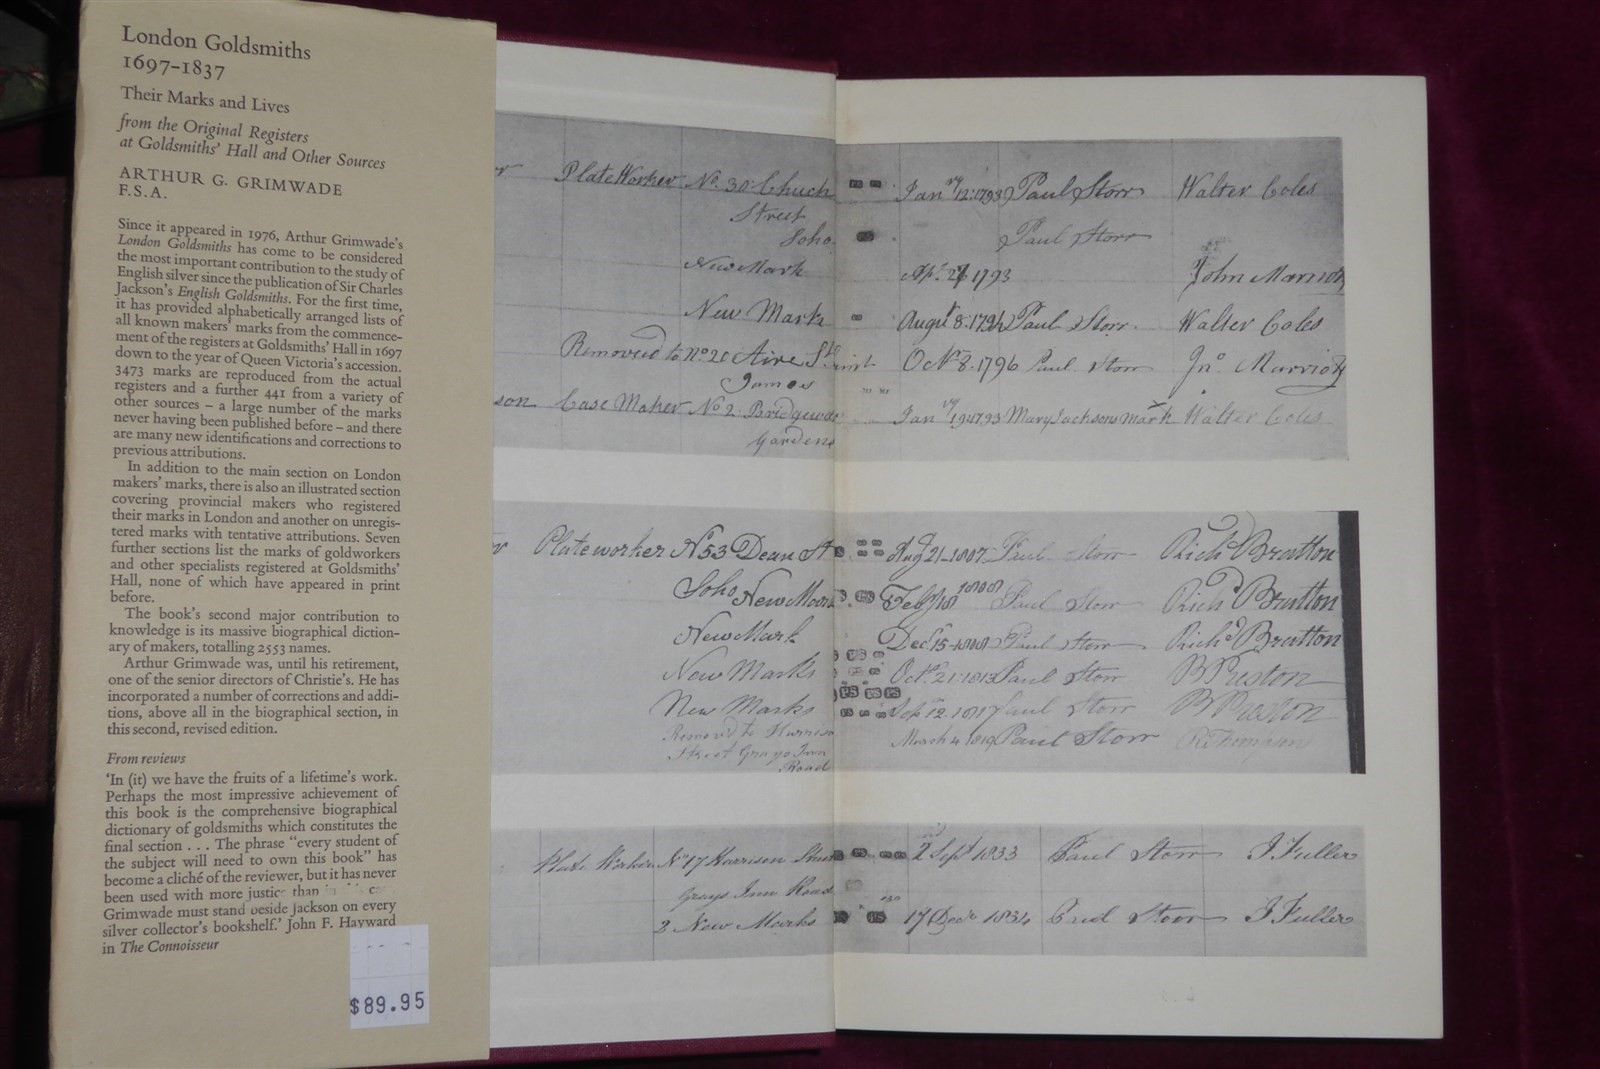 London Goldsmiths
1697–1837
Their Marks and Lives
from the Original Registers
at Goldsmiths' Hall and Other Sources
ARTHUR G. GRIMWADE
F.S.A.
Since it appeared in 1976, Arthur Grimwade's
London Goldsmiths has come to be considered
the most important contribution to the study of
English silver since the publication of Sir Charles
Jackson's English Goldsmiths. For the first time,
it has provided alphabetically arranged lists of
all known makers' marks from the commence-
ment of the registers at Goldsmiths' Hall in 1697
down to the year of Queen Victoria's accession.
3473 marks are reproduced from the actual
registers and a further 441 from a variety of
other sources – a large number of the marks
never having been published before – and there
are many new identifications and corrections to
previous attributions.
In addition to the main section on London
makers' marks, there is also an illustrated section
covering provincial makers who registered
their marks in London and another on unregis-
tered marks with tentative attributions. Seven
further sections list the marks of goldworkers
and other specialists registered at Goldsmiths'
Hall, none of which have appeared in print
before.
The book's second major contribution to
knowledge is its massive biographical diction-
ary of makers, totalling 2553 names.
Arthur Grimwade was, until his retirement,
one of the senior directors of Christie's. He has
incorporated a number of corrections and addi-
tions, above all in the biographical section, in
this second, revised edition.
From reviews
'In (it) we have the fruits of a lifetime's work.
Perhaps the most impressive achievement of
this book is the comprehensive biographical
dictionary of goldsmiths which constitutes the
final section . . . The phrase "every student of
the subject will need to own this book" has
become a cliché of the reviewer, but it has never
been used with more justice than
Grimwade must stand beside Jackson on every
silver collector's bookshelf.' John F. Hayward
in The Connoisseur
$89.95
Plate Worker No. 30 Church Jany 12 1793 Paul Storr Walter Coles
Street
Soho Paul Storr
New Mark Apl. 27 1793 John Marriott
New Mark Augst 8. 1794 Paul Storr Walter Coles
Removed to No 20 Aire St Octr 8. 1796 Paul Storr Jno. Marriott
James
son Case Maker No 2 Bridgwater Jany 19 1793 Mary Jacksons X Mark Walter Coles
Gardens
Plateworker N 53 Dean St Aug 21-1807 Paul Storr Richd Bratton
Soho New Mark Feby Paul Storr Richd Bratton
New Mark Decr 15-1808 Paul Storr Richd Bratton
New Marks Octr 21 1813 Paul Storr B Preston
PS PS PS
New Marks Sep 12. 1817 Paul Storr B Preston
Removed to Harrison March 4 1819 Paul Storr
Street Grays Inn
Road
Plate Worker No 17 Harrison Street 2 Sept 1833 Paul Storr J Fuller
Grays Inn Road
2 New Marks 17 Decr 1834 Paul Storr J Fuller